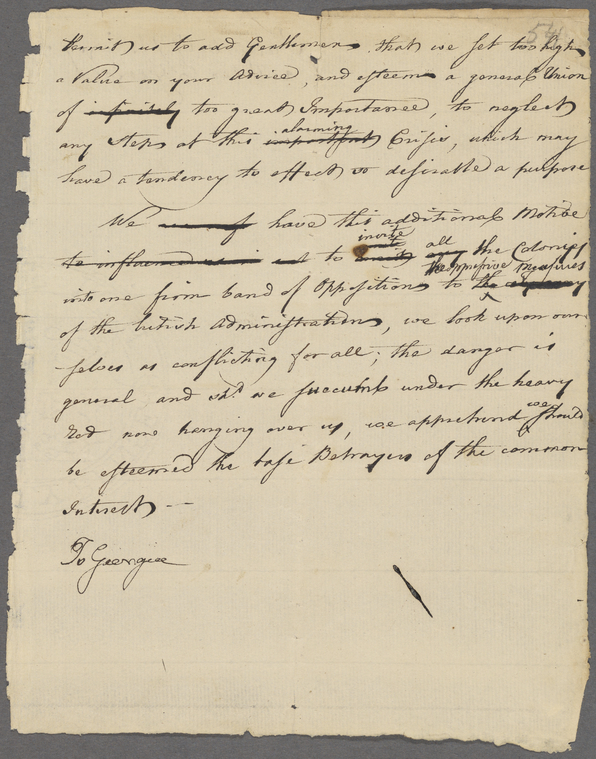 54
Permit us to add Gentlemen that we set too high
a Value on your Advice, and esteem a general Union
of infinitely too great Importance, to neglect
any Steps at this important alarming Crisis, which may
have a tendency to effect so desirable a purpose
We have this additional Motive
to influence us in to unite invite any all the Colonies
into one firm band of Opposition to the the oppressive measures
of the british Administration, we look upon our
-selves as conflicting for all; the danger is
general and shd. we succumb under the heavy
Rod now hanging over us, we apprehend we should
be esteemed the base Betrayers of the common
Interest —
To Georgia